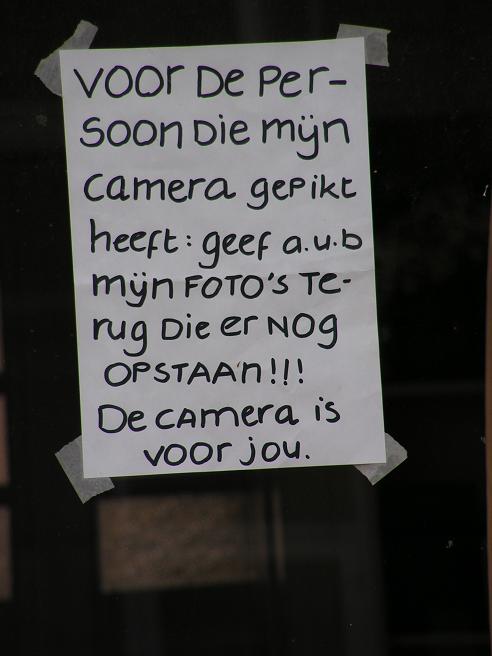 VOOR De Per-
SOON Die mÿn
Camera gepikt
heeft: geef a.u.b
mÿn FOTO'S Te-
rug Die er NOG
OPSTAAN!!!
De CAmera is
VOOR jou.